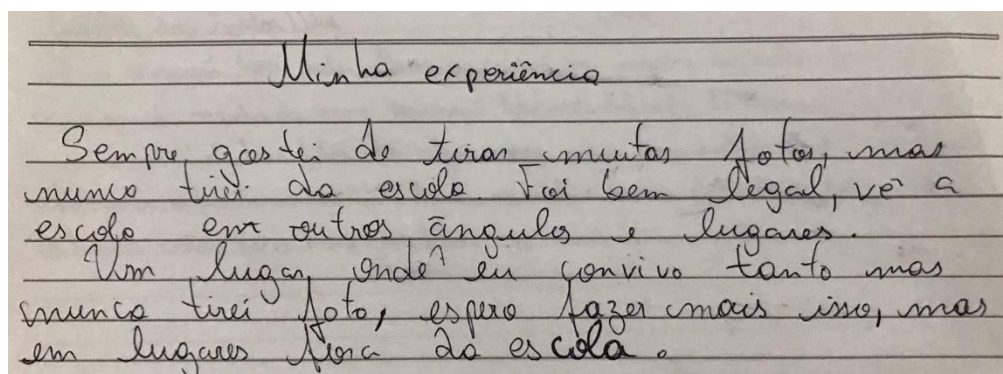 Minha experiência
Sempre gostei de tirar muitas fotos, mas
nunca tirei da escola. Foi bem legal, vê a
escola em outros ângulos e lugares.
Um lugar, onde eu convivo tanto mas
nunca tirei foto, espero fazer mais isso, mas
em lugares fora da escola.